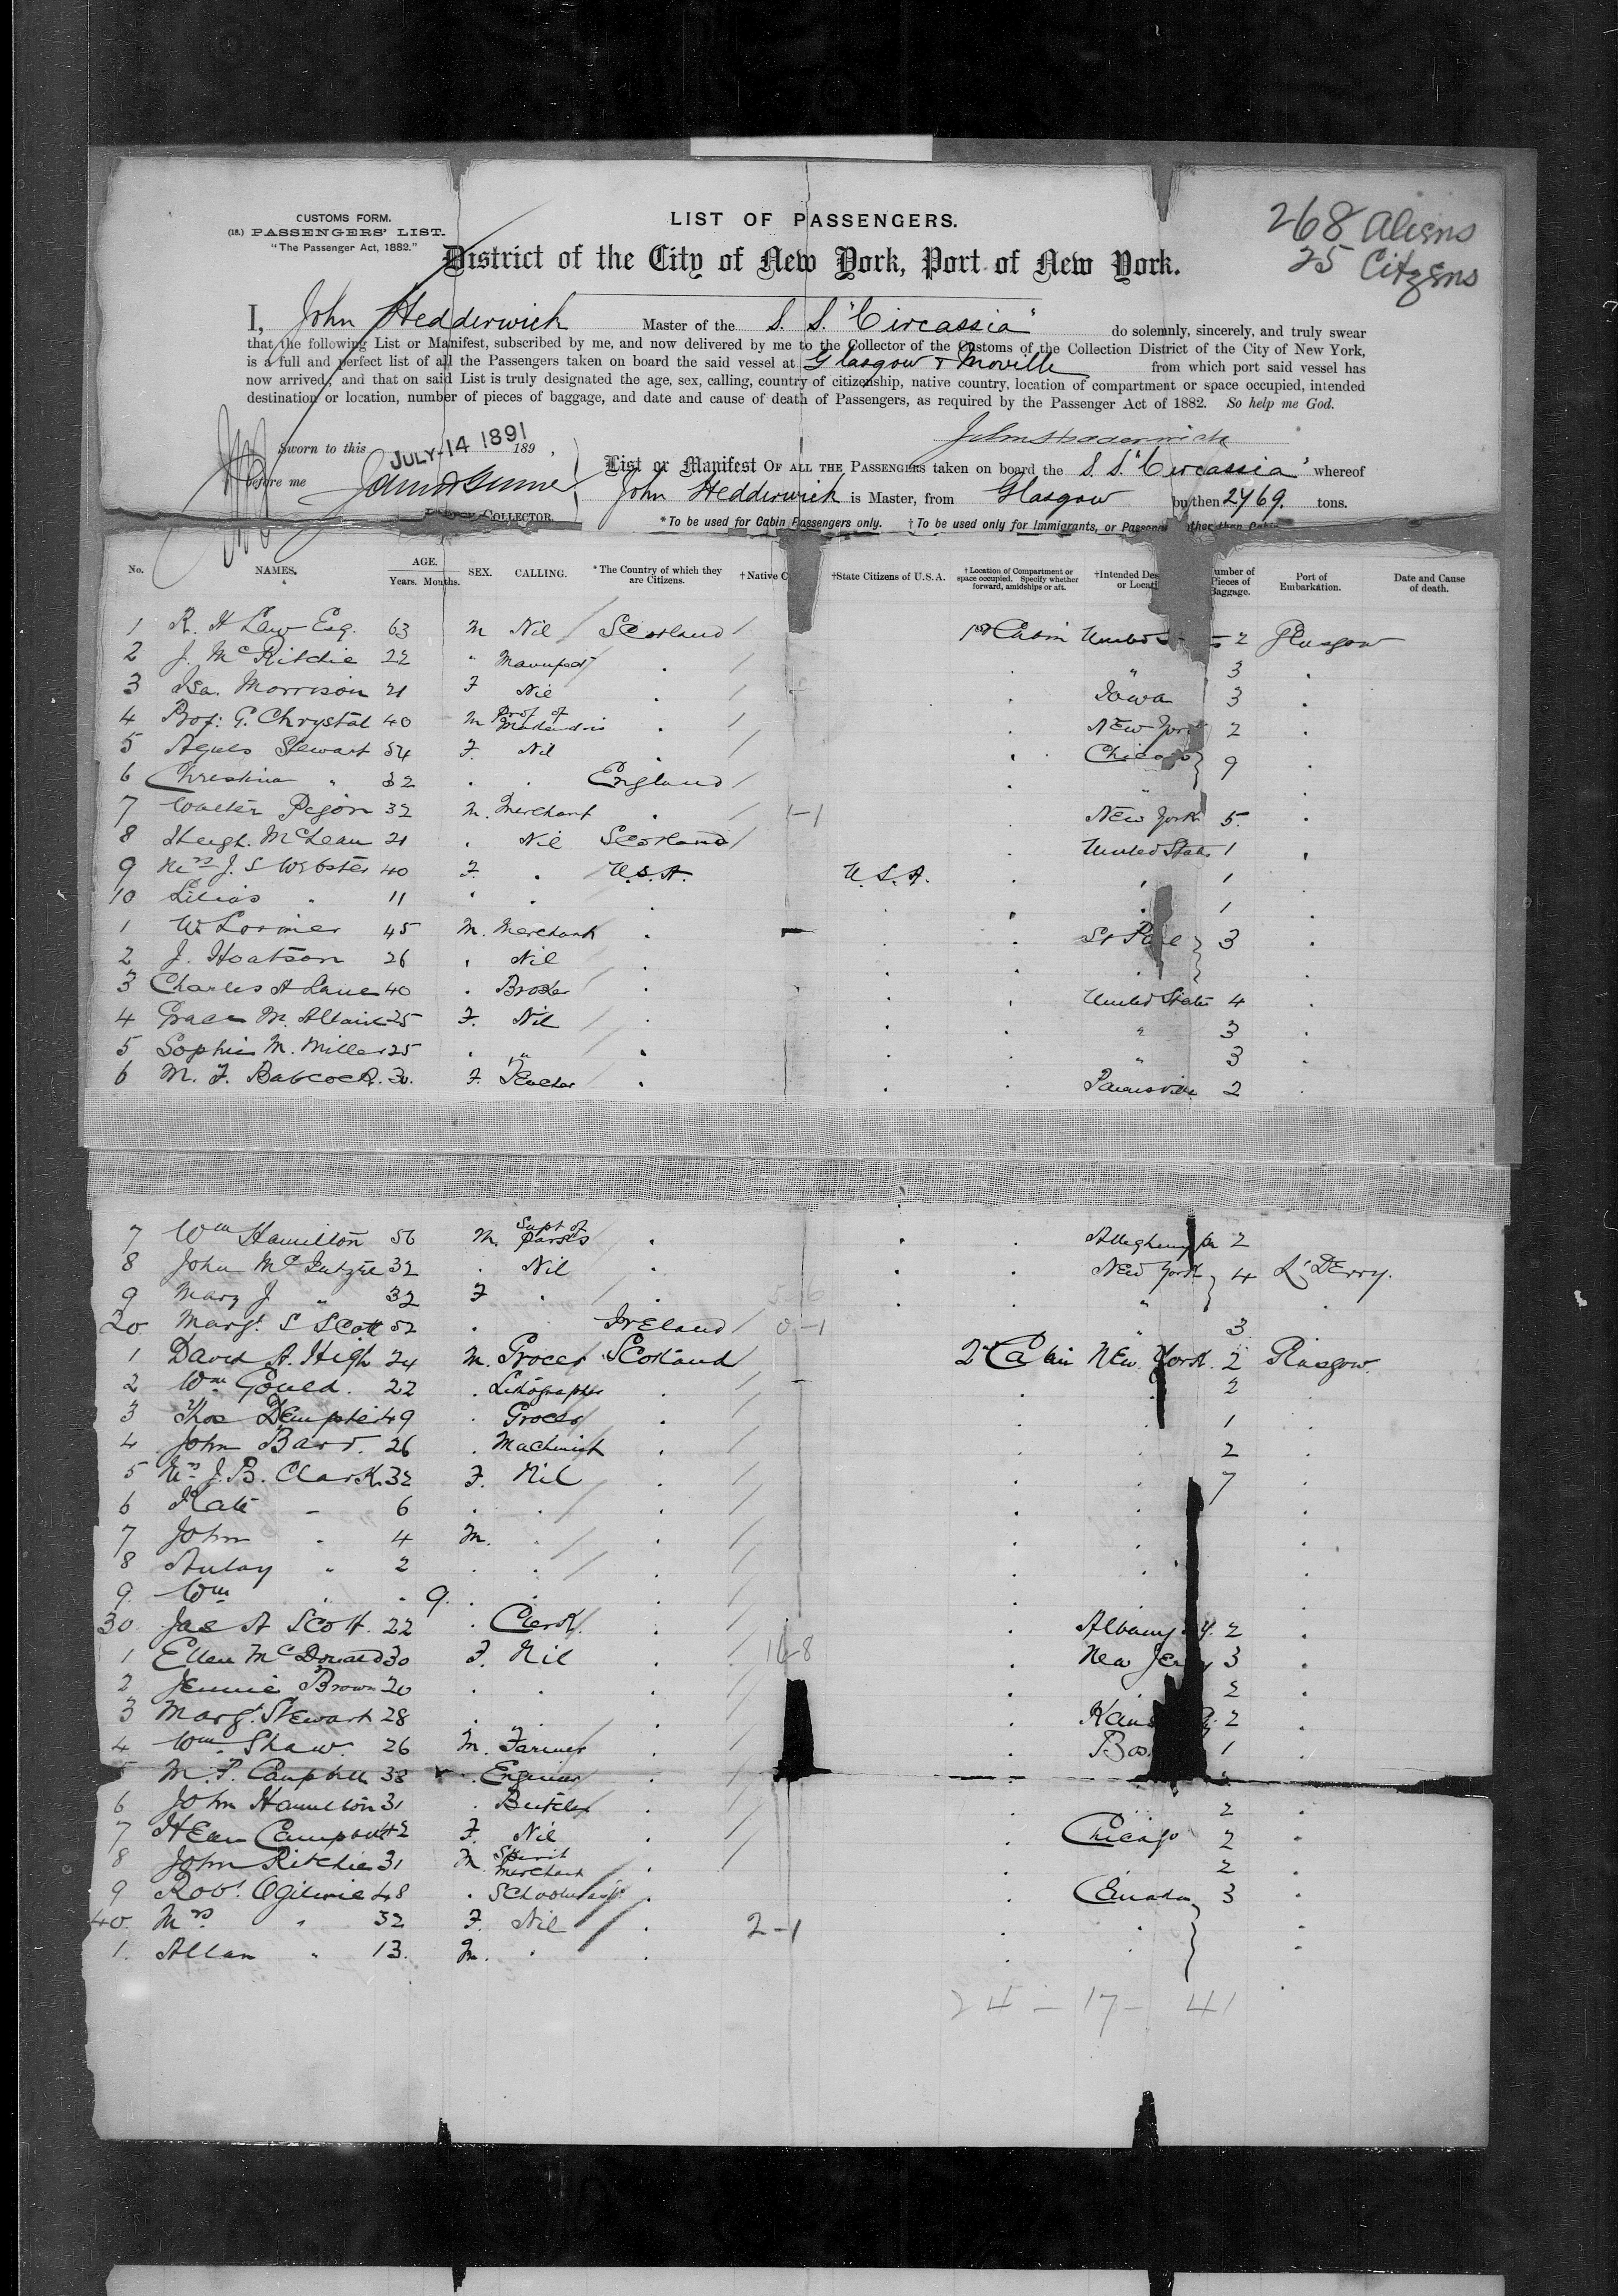 CUSTOMS FORM.
(18.) PASSENGERS' LIST.
"The Passenger Act, 1882."
LIST OF PASSENGERS.
268 Aliens
25 Citizens
District of the City of New York, Port of New York.
I, John Hedderwick Master of the S. S. "Circassia" do solemnly, sincerely, and truly swear
that the following List or Manifest, subscribed by me, and now delivered by me to the Collector of the Customs of the Collection District of the City of New York,
is a full and perfect list of all the Passengers taken on board the said vessel at Glasgow & Moville from which port said vessel has
now arrived; and that on said List is truly designated the age, sex, calling, country of citizenship, native country, location of compartment or space occupied, intended
destination or location, number of pieces of baggage, and date and cause of death of Passengers, as required by the Passenger Act of 1882. So help me God.
John Hedderwick
Sworn to this JULY 14 1891 189 ,
before me
COLLECTOR.
List or Manifest OF ALL THE PASSENGERS taken on board the S. S. "Circassia" whereof
John Hedderwick is Master, from Glasgow burthen 2769. tons.
*To be used for Cabin Passengers only. †To be used only for Immigrants, or Passengers other than Cabin
No. NAMES. AGE. Years. Months. SEX. CALLING. *The Country of which they are Citizens. †Native C †State Citizens of U.S.A. †Location of Compartment or space occupied. Specify whether forward, amidships or aft. †Intended Des or Locati umber of Pieces of Baggage. Port of Embarkation. Date and Cause of death.
1 R. H Law Esq. 63 M Nil Scotland 1st Cabin United 2 Glasgow
2 J. McRitchie 22 " 3
3 Isa. Morrison 21 F Nil Iowa 3
4 Prof: G. Chrystal 40 M Prof of New York 2
5 Agnes Stewart 54 F. Nil Chicago 9
6 Christina " 32 England "
7 Walter 32 M. Merchant 1-1 New York 5.
8 Hugh. McLean 21 Nil Scotland United States 1
9 Mrs J. S Webster 40 F. U.S.A. U.S.A. 1
10 Lilias " 11 1
1 W. Lorimer 45 M. Merchant St Paul 3
2 J. Hoatson 26 Nil
3 Charles A Lane 40 Broker United States 4
4 Grace M. 25 F. Nil " 3
5 Sophie M. Miller 25 " " 3
6 M. F. Babcock. 30. F. Teacher 2
7 Wm Hamilton 56 M. Supt of Allegheny Pa 2
8 John McIntyre 32 Nil New York 4 L'Derry.
9 Mary J " 32 F "
20. Margt. S Scott 52 Ireland 0-1 " 3
1 David A. High 24 M. Grocer Scotland 2nd Cabin New York. 2 Glasgow.
2 Wm Gould. 22 Lithographer 2
3 Thos Dempster 49 Grocer 1
4 John Bard. 26 Machinist 2
5 Mrs J. B. Clark 32 F. Nil 7
6 Kate " 6
7 John " 4 M.
8 Aulay " 2
9. Wm " 9.
30 Jas A Scott. 22 Clerk Albany 2
1 Ellen McDonald 30 F. Nil 16-8 New Jersey 3
2 Jennie Brown 20 2
3 Margt. Stewart 28 Kans 2
4 Wm Shaw. 26 M. Farmer Bos 1
5 M. P. Campbell 38 Engineer
6 John Hamilton 31 Butcher 2
7 Campbell 42 F. Nil Chicago 2
8 John Ritchie 31 M Spirit Merchant 2
9 Robt. Ogilvie 48 Canada 3
40. Mrs " 32 F. Nil 2-1
1. Allan " 13. M.
24 - 17 - 41